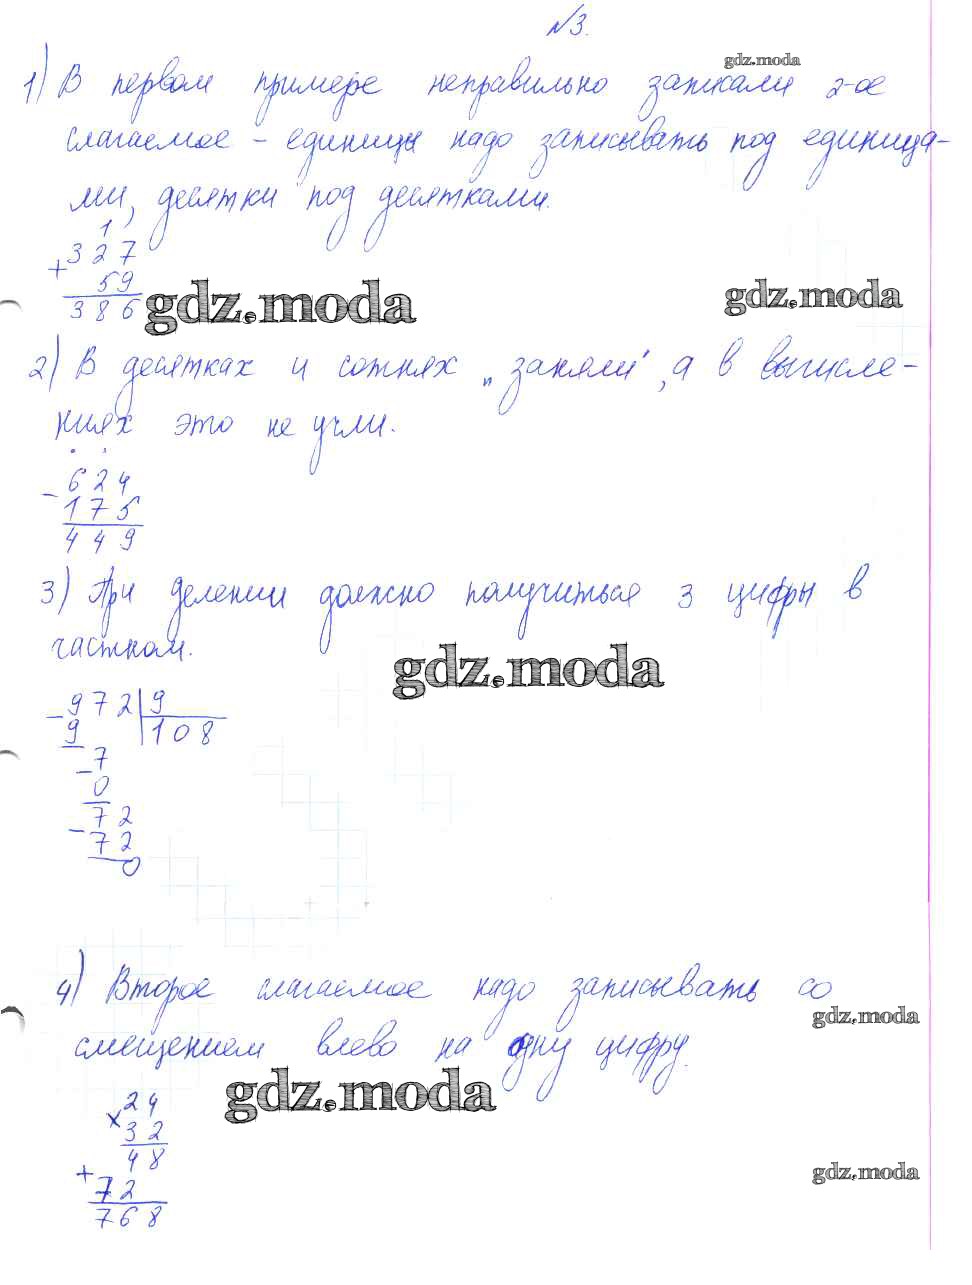 №3.
gdz.moda
1) В первом примере неправильно записали 2-ое
слагаемое - единицы надо записывать под единица-
ми, десятки под десятками.
1
+ 327
59
386
gdz.moda
gdz.moda
2) В десятках и сотнях „заняли", а в вычисле-
ниях это не учли.
- 624
175
449
3) При делении должно получиться 3 цифры в
частном.
gdz.moda
- 972 | 9
9 | 108
- 7
0
- 72
72
0
4) Второе слагаемое надо записывать со
gdz.moda
смещением влево на одну цифру.
gdz.moda
× 24
32
48
gdz.moda
+ 72
768